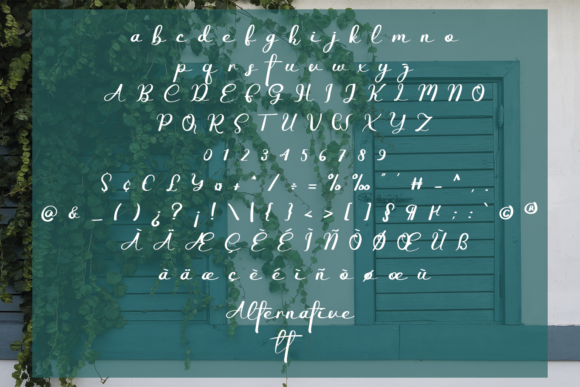 a b c d e f g h i j k l m n o
p q r s t u v w x y z
A B C D E F G H I J K L M N O
P Q R S T U V W X Y Z
0 1 2 3 4 5 6 7 8 9
$ ¢ C £ Y ¤ + * / ÷ = % ‰ " ' # - ^ , .
@ & _ ( ) ¿ ? ¡ ! \ | { } < > [ ] § ¶ : ; ` © ®
À Ä Æ Ç È É Ì Ñ Ò Ø Œ Ù ß
à ä æ ç è é ì ñ ò ø œ ù
Alternative
tt